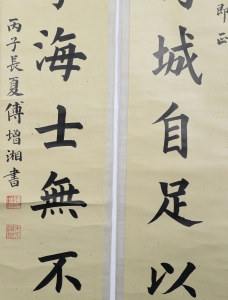 即正
城自足以
海士無不
丙子長夏傅增湘書